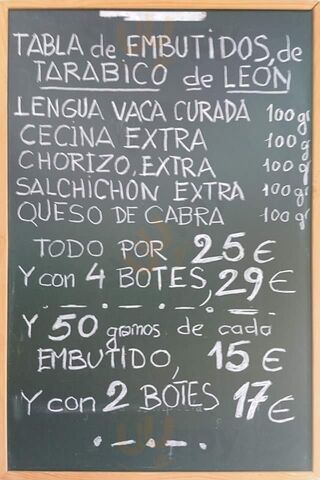 TABLA de EMBUTIDOS, de
TARABICO de LEÓN
LENGUA VACA CURADA 100gr
CECINA EXTRA 100g
CHORIZO, EXTRA 100g
SALCHICHON EXTRA 100gr
QUESO DE CABRA 100gr
TODO POR 25€
Y con 4 BOTES, 29€
Y 50 gramos de cada
EMBUTIDO, 15€
Y con 2 BOTES 17€